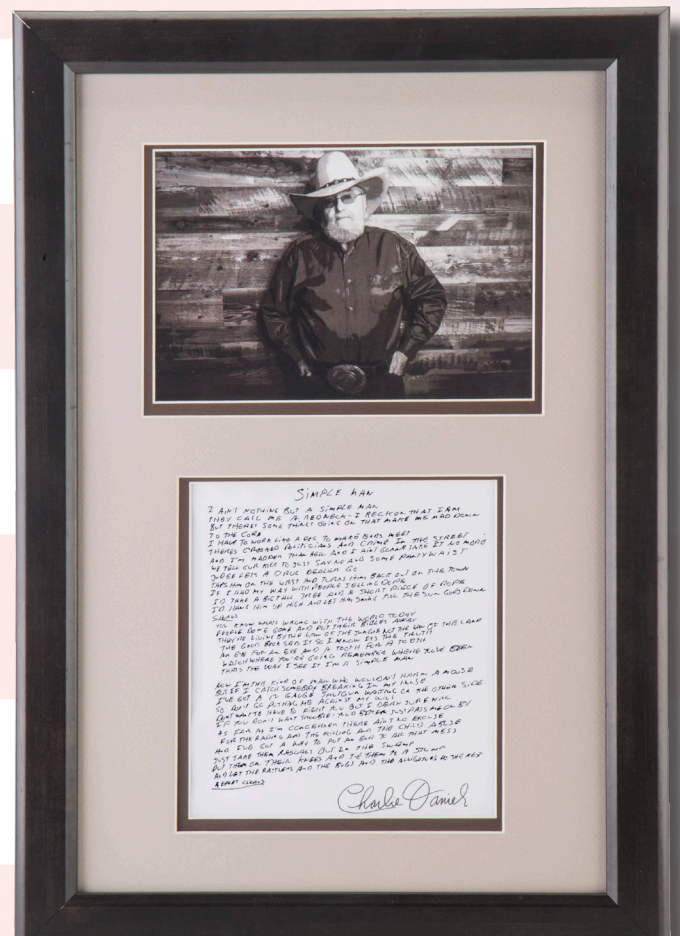 SIMPLE MAN
I AIN'T NOTHING BUT A SIMPLE MAN
THEY CALL ME A REDNECK - I RECKON THAT I AM
BUT THERES SOME THINGS GOING ON THAT MAKE ME MAD DOWN
TO THE CORE
I HAVE TO WORK LIKE A DOG TO MAKE ENDS MEET
THERES CROOKED POLITICIANS AND CRIME IN THE STREET
AND I'M MADDER THAN HELL AND I AIN'T GONNA TAKE IT NO MORE
WE TELL OUR KIDS TO JUST SAY NO AND SOME PANTY WAIST
JUDGE LETS A DRUG DEALER GO
SLAPS HIM ON THE WRIST AND TURNS HIM BACK OUT ON THE TOWN
IF I HAD MY WAY WITH PEOPLE SELLING DOPE
I'D TAKE A BIG TALL TREE AND A SHORT PIECE OF ROPE
I'D HANG HIM UP HIGH AND LET HIM SWING TILL THE SUN GOES DOWN
CHORUS
YOU KNOW WHAT'S WRONG WITH THE WORLD TODAY
PEOPLE DONE GONE AND PUT THEIR BIBLES AWAY
THEY'RE LIVING BY THE LAW OF THE JUNGLE NOT THE LAW OF THE LAND
THE GOOD BOOK SAYS IT SO I KNOW IT'S THE TRUTH
AN EYE FOR AN EYE AND A TOOTH FOR A TOOTH
WATCH WHERE YOU'RE GOING REMEMBER WHERE YOU'VE BEEN
THAT'S THE WAY I SEE IT I'M A SIMPLE MAN
NOW I'M THE KIND OF MAN WHO WOULDN'T HARM A MOUSE
BUT IF I CATCH SOMEBODY BREAKING IN MY HOUSE
I'VE GOT A 12 GAUGE SHOTGUN WAITING ON THE OTHER SIDE
SO DON'T GO PUSHING ME AGAINST MY WILL
DON'T WANT TO HAVE TO FIGHT YOU BUT I DERN SURE WILL
IF YOU DON'T WANT TROUBLE - YOU'D BETTER JUST PASS ME ON BY
AS FAR AS I'M CONCERNED THERE AIN'T NO EXCUSE
FOR THE RAPING AND THE KILLING AND THE CHILD ABUSE
AND I'VE GOT A WAY TO PUT AN END TO ALL THAT MESS
JUST TAKE THEM RASCALS OUT IN THE SWAMP
PUT THEM ON THEIR KNEES AND TIE THEM TO A STUMP
AND LET THE RATTLERS AND THE BUGS AND THE ALLIGATORS DO THE REST
REPEAT CHORUS
Charlie Daniels